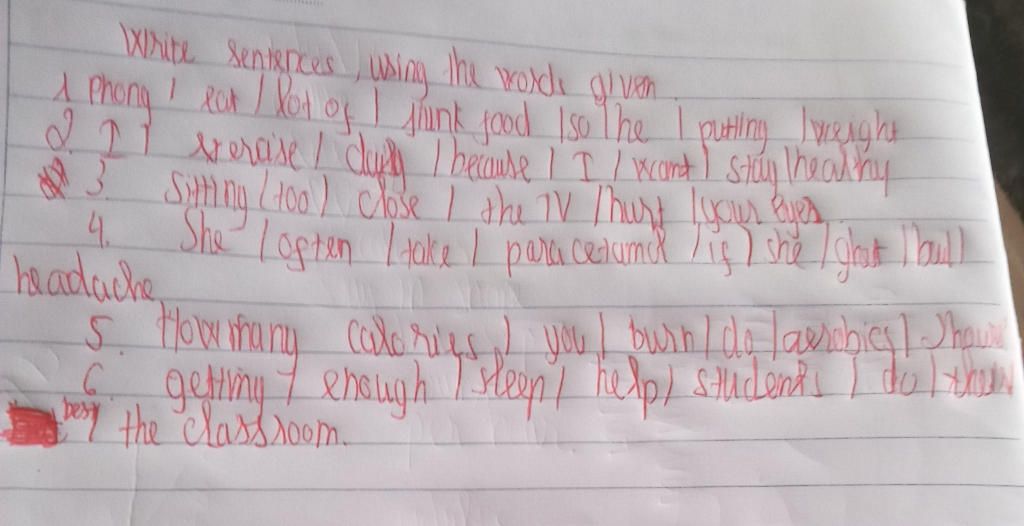 Write sentences, using the words given.
1 Phong / eat / lot of / junk food / so / he / putting / weight
2. I / exercise / daily / because / I / want / stay / healthy
3. Sitting / too / close / the TV / hurt / your eyes
4. She / often / take / paracetamol / if / she / bad /
headache
5. How many calories / you / burn / do / aerobics /
6. getting / enough / sleep / help / students / do / their
best / the classroom.